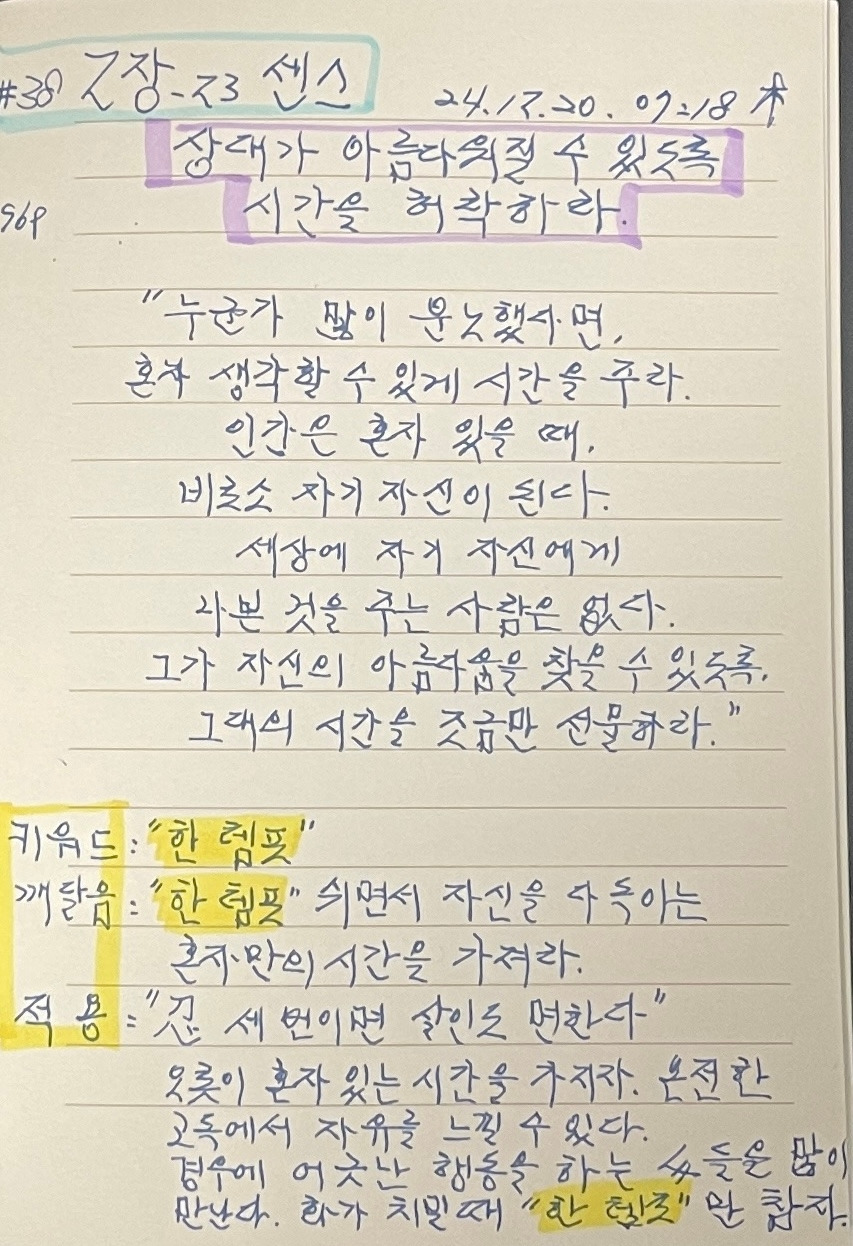 #38 2장-23 센스
24.12.20. 07:18 木
상대가 아름다워질 수 있도록
시간을 허락하라.
96p
"누군가 많이 분노했다면,
혼자 생각할 수 있게 시간을 주라.
인간은 혼자 있을 때,
비로소 자기 자신이 된다.
세상에 자기 자신에게
나쁜 것을 주는 사람은 없다.
그가 자신의 아름다움을 찾을 수 있도록,
그대의 시간을 조금만 선물하라."
키워드 : "한 템포"
깨달음 : "한 템포" 쉬면서 자신을 다독이는
혼자만의 시간을 가져라.
적 용 : "忍 세 번이면 살인도 면한다"
오롯이 혼자 있는 시간을 가지자. 온전한
고독에서 자유를 느낄 수 있다.
경우에 어긋난 행동을 하는 들을 많이
만난다. 화가 치밀때 "한 템포"만 참자.